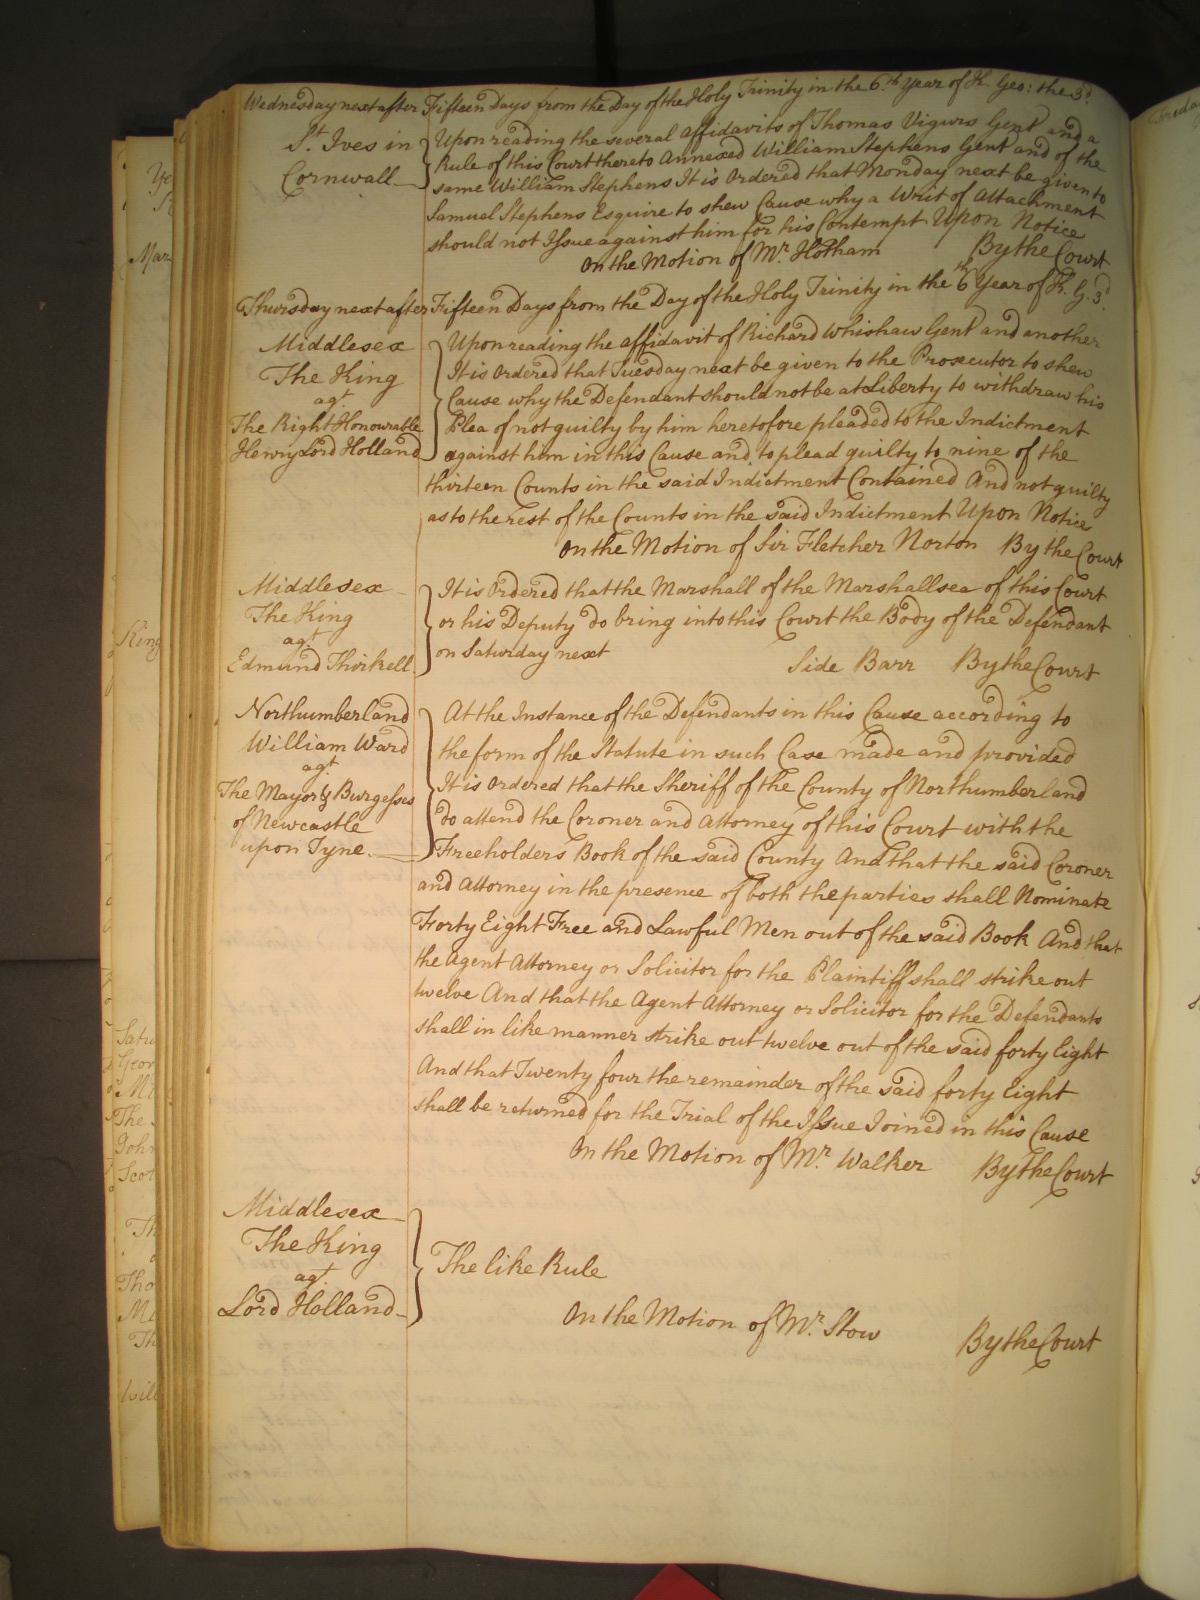 Wednesday next after Fifteen Days from the Day of the Holy Trinity in the 6.th Year of K. Geo: the 3.d
St. Ives in
Cornwall
Upon reading the several affidavits of Thomas Vigurs Gent and a
Rule of this Court thereto Annexed William Stephens Gent and of the
same William Stephens It is Ordered that Monday next be given to
Samuel Stephens Esquire to shew Cause why a Writ of Attachment
should not Issue against him for his Contempt Upon Notice
On the Motion of Mr. Hotham By the Court
Thursday next after Fifteen Days from the Day of the Holy Trinity in the 6th Year of K. G. 3d
Middlesex
The King
agt.
The Right Honourable
Henry Lord Holland
Upon reading the affidavit of Richard Whishaw Gent and another
It is Ordered that Tuesday next be given to the Prosecutor to shew
Cause why the Defendant should not be at Liberty to withdraw his
Plea of not guilty by him heretofore pleaded to the Indictment
against him in this Cause and to plead guilty to nine of the
thirteen Counts in the said Indictment Contained And not guilty
as to the rest of the Counts in the said Indictment Upon Notice
On the Motion of Sir Fletcher Norton By the Court
Middlesex
The King
agt.
Edmund Thirkell
It is Ordered that the Marshall of the Marshallsea of this Court
or his Deputy do bring into this Court the Body of the Defendant
on Saturday next Side Barr By the Court
Northumberland
William Ward
agt.
The Mayor & Burgesses
of Newcastle
upon Tyne.
At the Instance of the Defendants in this Cause according to
the form of the Statute in such Case made and provided
It is Ordered that the Sheriff of the County of Northumberland
do attend the Coroner and Attorney of this Court with the
Freeholders Book of the said County And that the said Coroner
and Attorney in the presence of both the parties shall Nominate
Forty Eight Free and Lawful Men out of the said Book And that
the Agent Attorney or Solicitor for the Plaintiff shall strike out
twelve And that the Agent Attorney or Solicitor for the Defendants
shall in like manner strike out twelve out of the said forty Eight
And that Twenty four the remainder of the said forty Eight
shall be returned for the Trial of the Issue Joined in this Cause
On the Motion of Mr. Walker By the Court
Middlesex
The King
agt.
Lord Holland
The like Rule
On the Motion of Mr. Stow By the Court